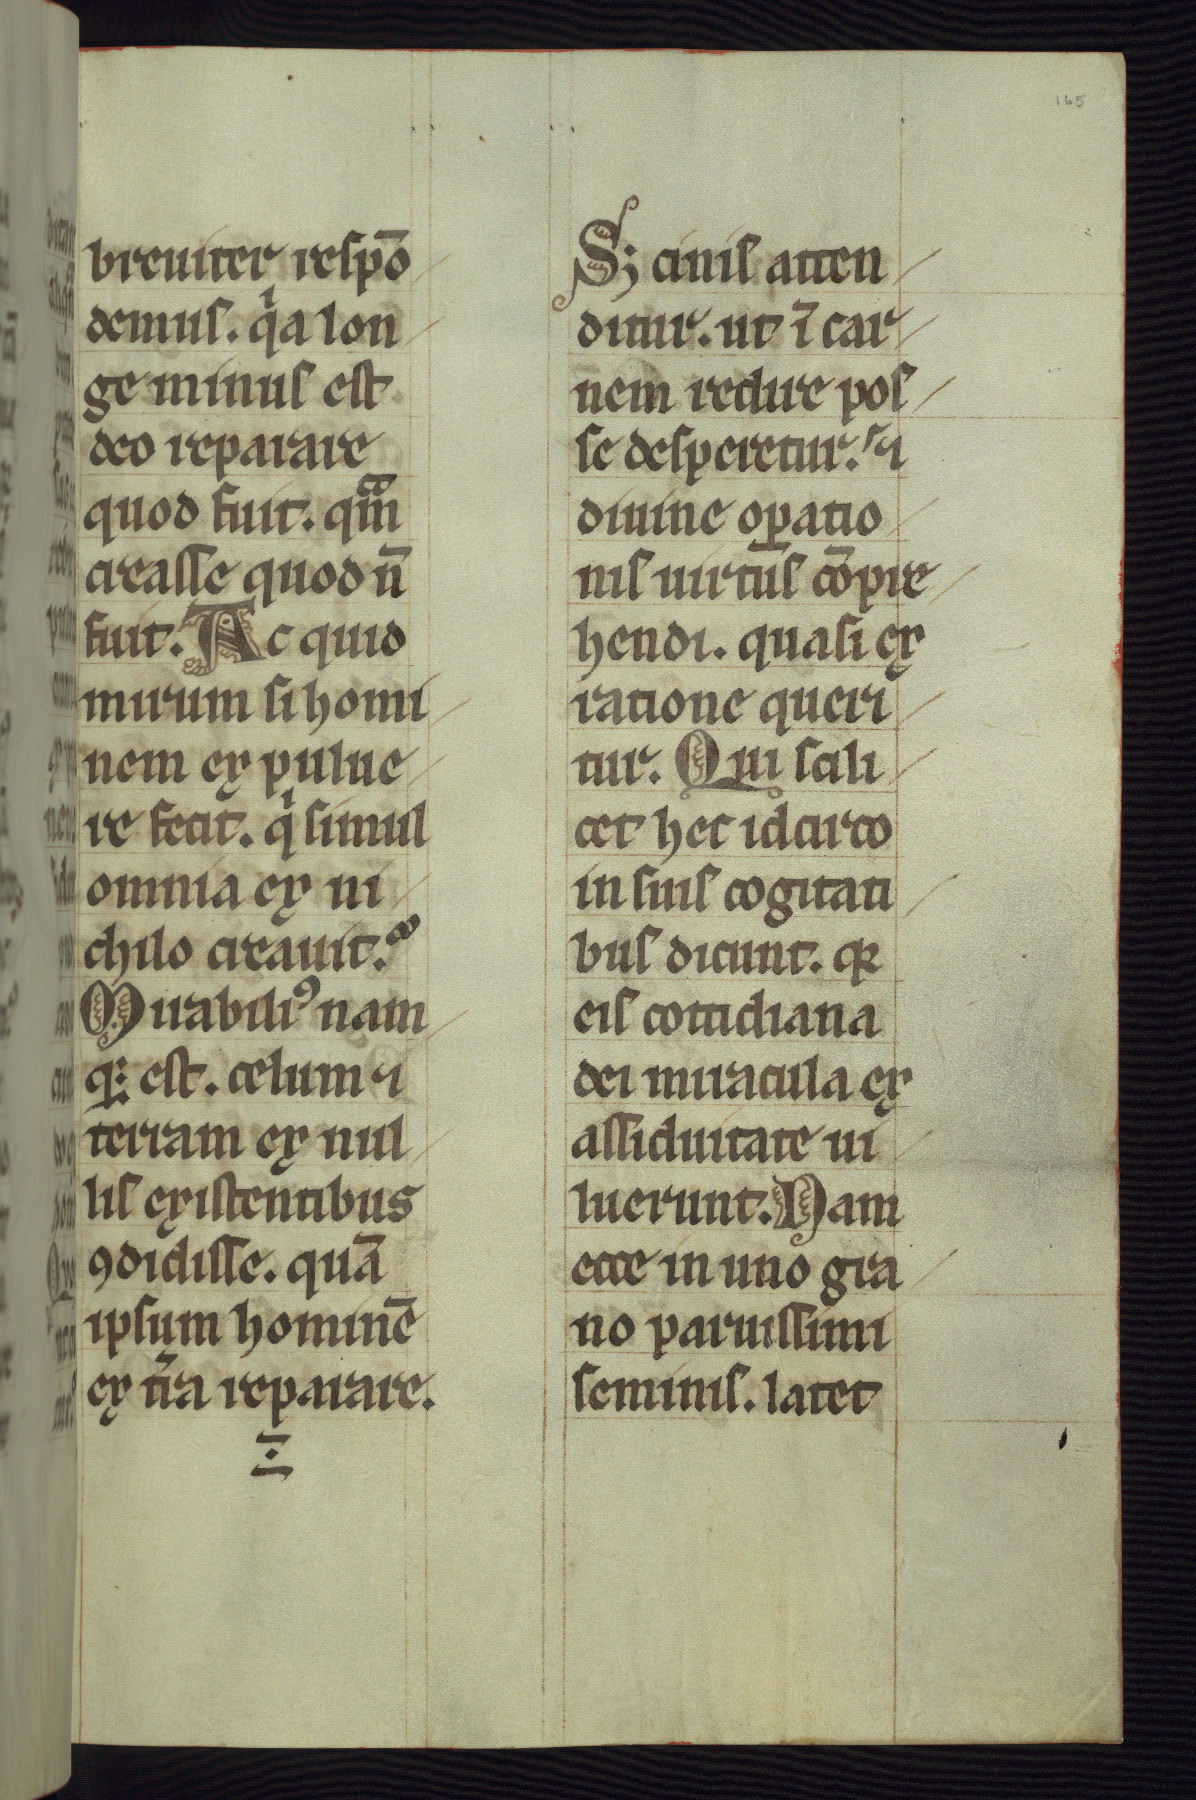 165
breuiter respō
demus. qͥa lon
ge minus est
deo reparare
quod fuit. qᷓm
creasse quod n̄
fuit. Ac quid
mirum si homi
nem ex pulue
re fecit. qͥ simul
omnia ex ni
chilo creauit.
Mirabiliꝰ nam
q; est. celum ⁊
terram ex nul
lis existentibus
ꝯdidisse. quā
ipsum hominē
ex t̄ra reparare.
Sꝫ cinis atten
ditur. ut ī car
nem redire pos
se desperetur. ⁊
diuine oꝑatio
nis uirtus cōpre
hendi. quasi ex
ratione queri
tur. Qui scili
cet hec idcirco
in suis cogitati
bus dicunt. qꝛ
eis cottidiana
dei miracula ex
assiduitate ui
luerunt. Nam
ecce in uno gra
no paruissimi
seminis. latet